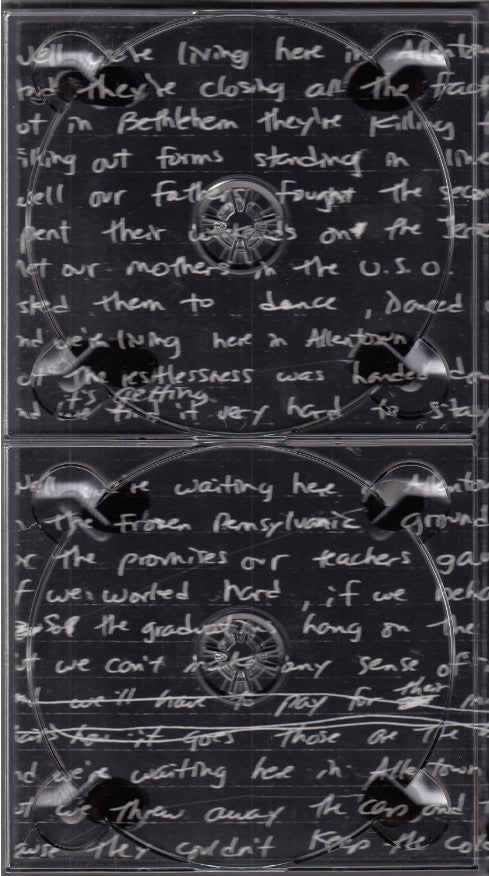 well we're living here in Allentown
they're closing all the fact
ot in Bethlehem they're killing t
illing out forms standing in line
well our Fathers fought the secon
pent their weekends on the Jerse
et our mothers in the U.S.O.
sked them to dance, Danced
nd we're living here in Allentown
ot The restlessness was handed do
it's getting
nd we find it very hard to stay
Well we're waiting here in Allentown
The Frozen Pennsylvania ground
or the promises our teachers gav
f we worked hard, if we beha
the graduation hang on the
ut we can't make any sense of
we'll have to pay for their
how it goes Those are the
nd we're waiting here in Allentown
t we threw away the cap and
ause They couldn't Keep the